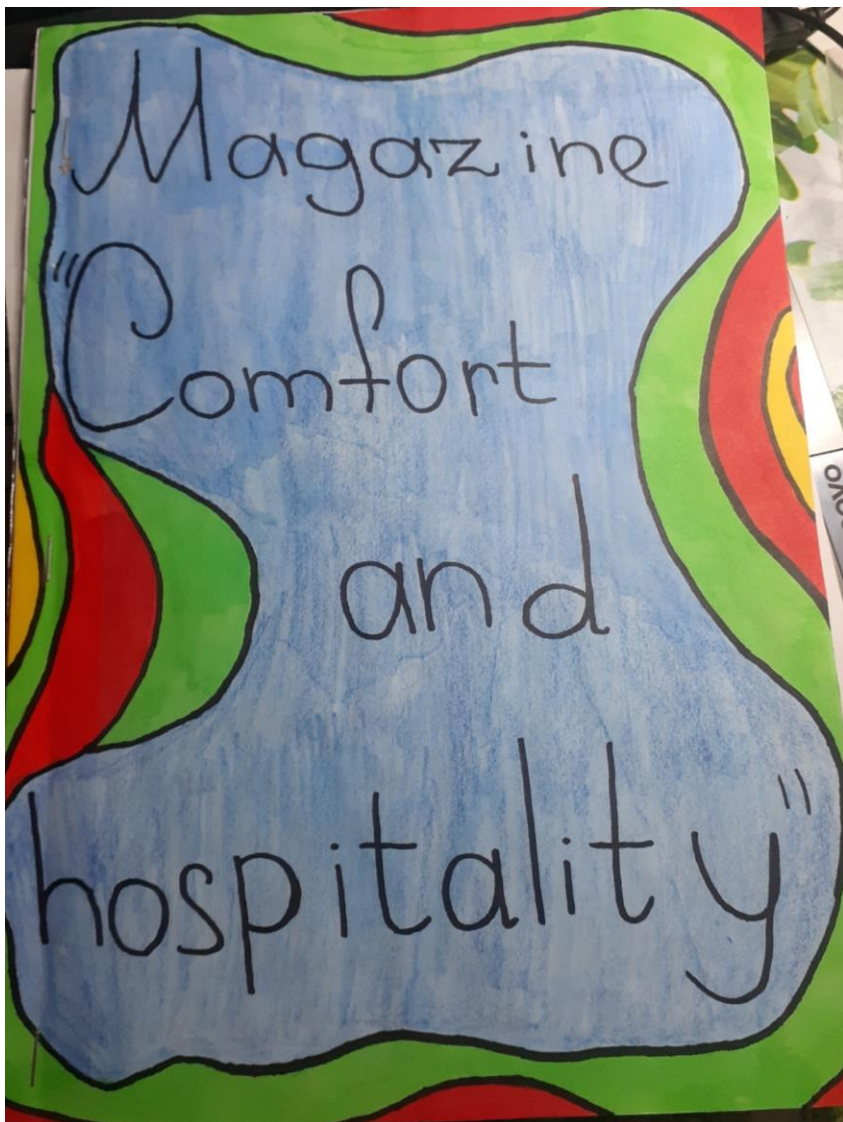 Magazine
"Comfort
and
hospitality"